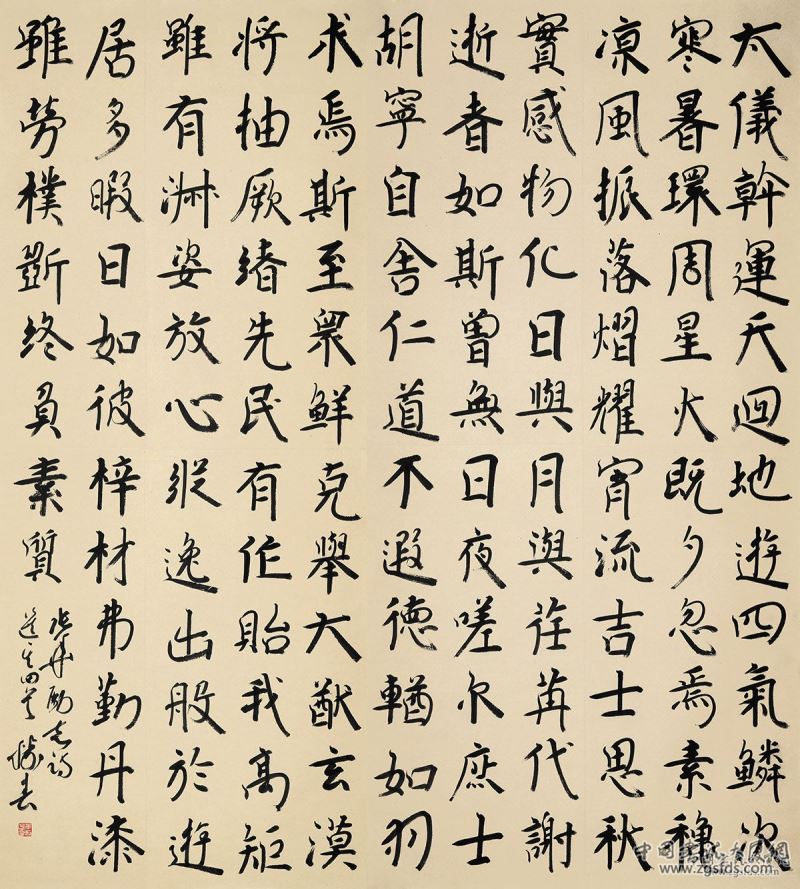 太儀幹運天迴地遊四氣鱗次
寒暑環周星火既夕忽焉素
凉風振落熠耀宵流吉士思秋
實感物化日與月與荏苒代謝
逝者如斯曾無日夜嗟尒庶士
胡寧自舍仁道不遐德輶如羽
求焉斯至眾鮮克舉大猷玄漠
将抽厥緒先民有作貽我高矩
雖有淑姿放心縱逸出般於遊
居多暇日如彼梓材弗勤丹漆
雖勞樸斲終負素質
張華勵志詩
www.zgsfds.com